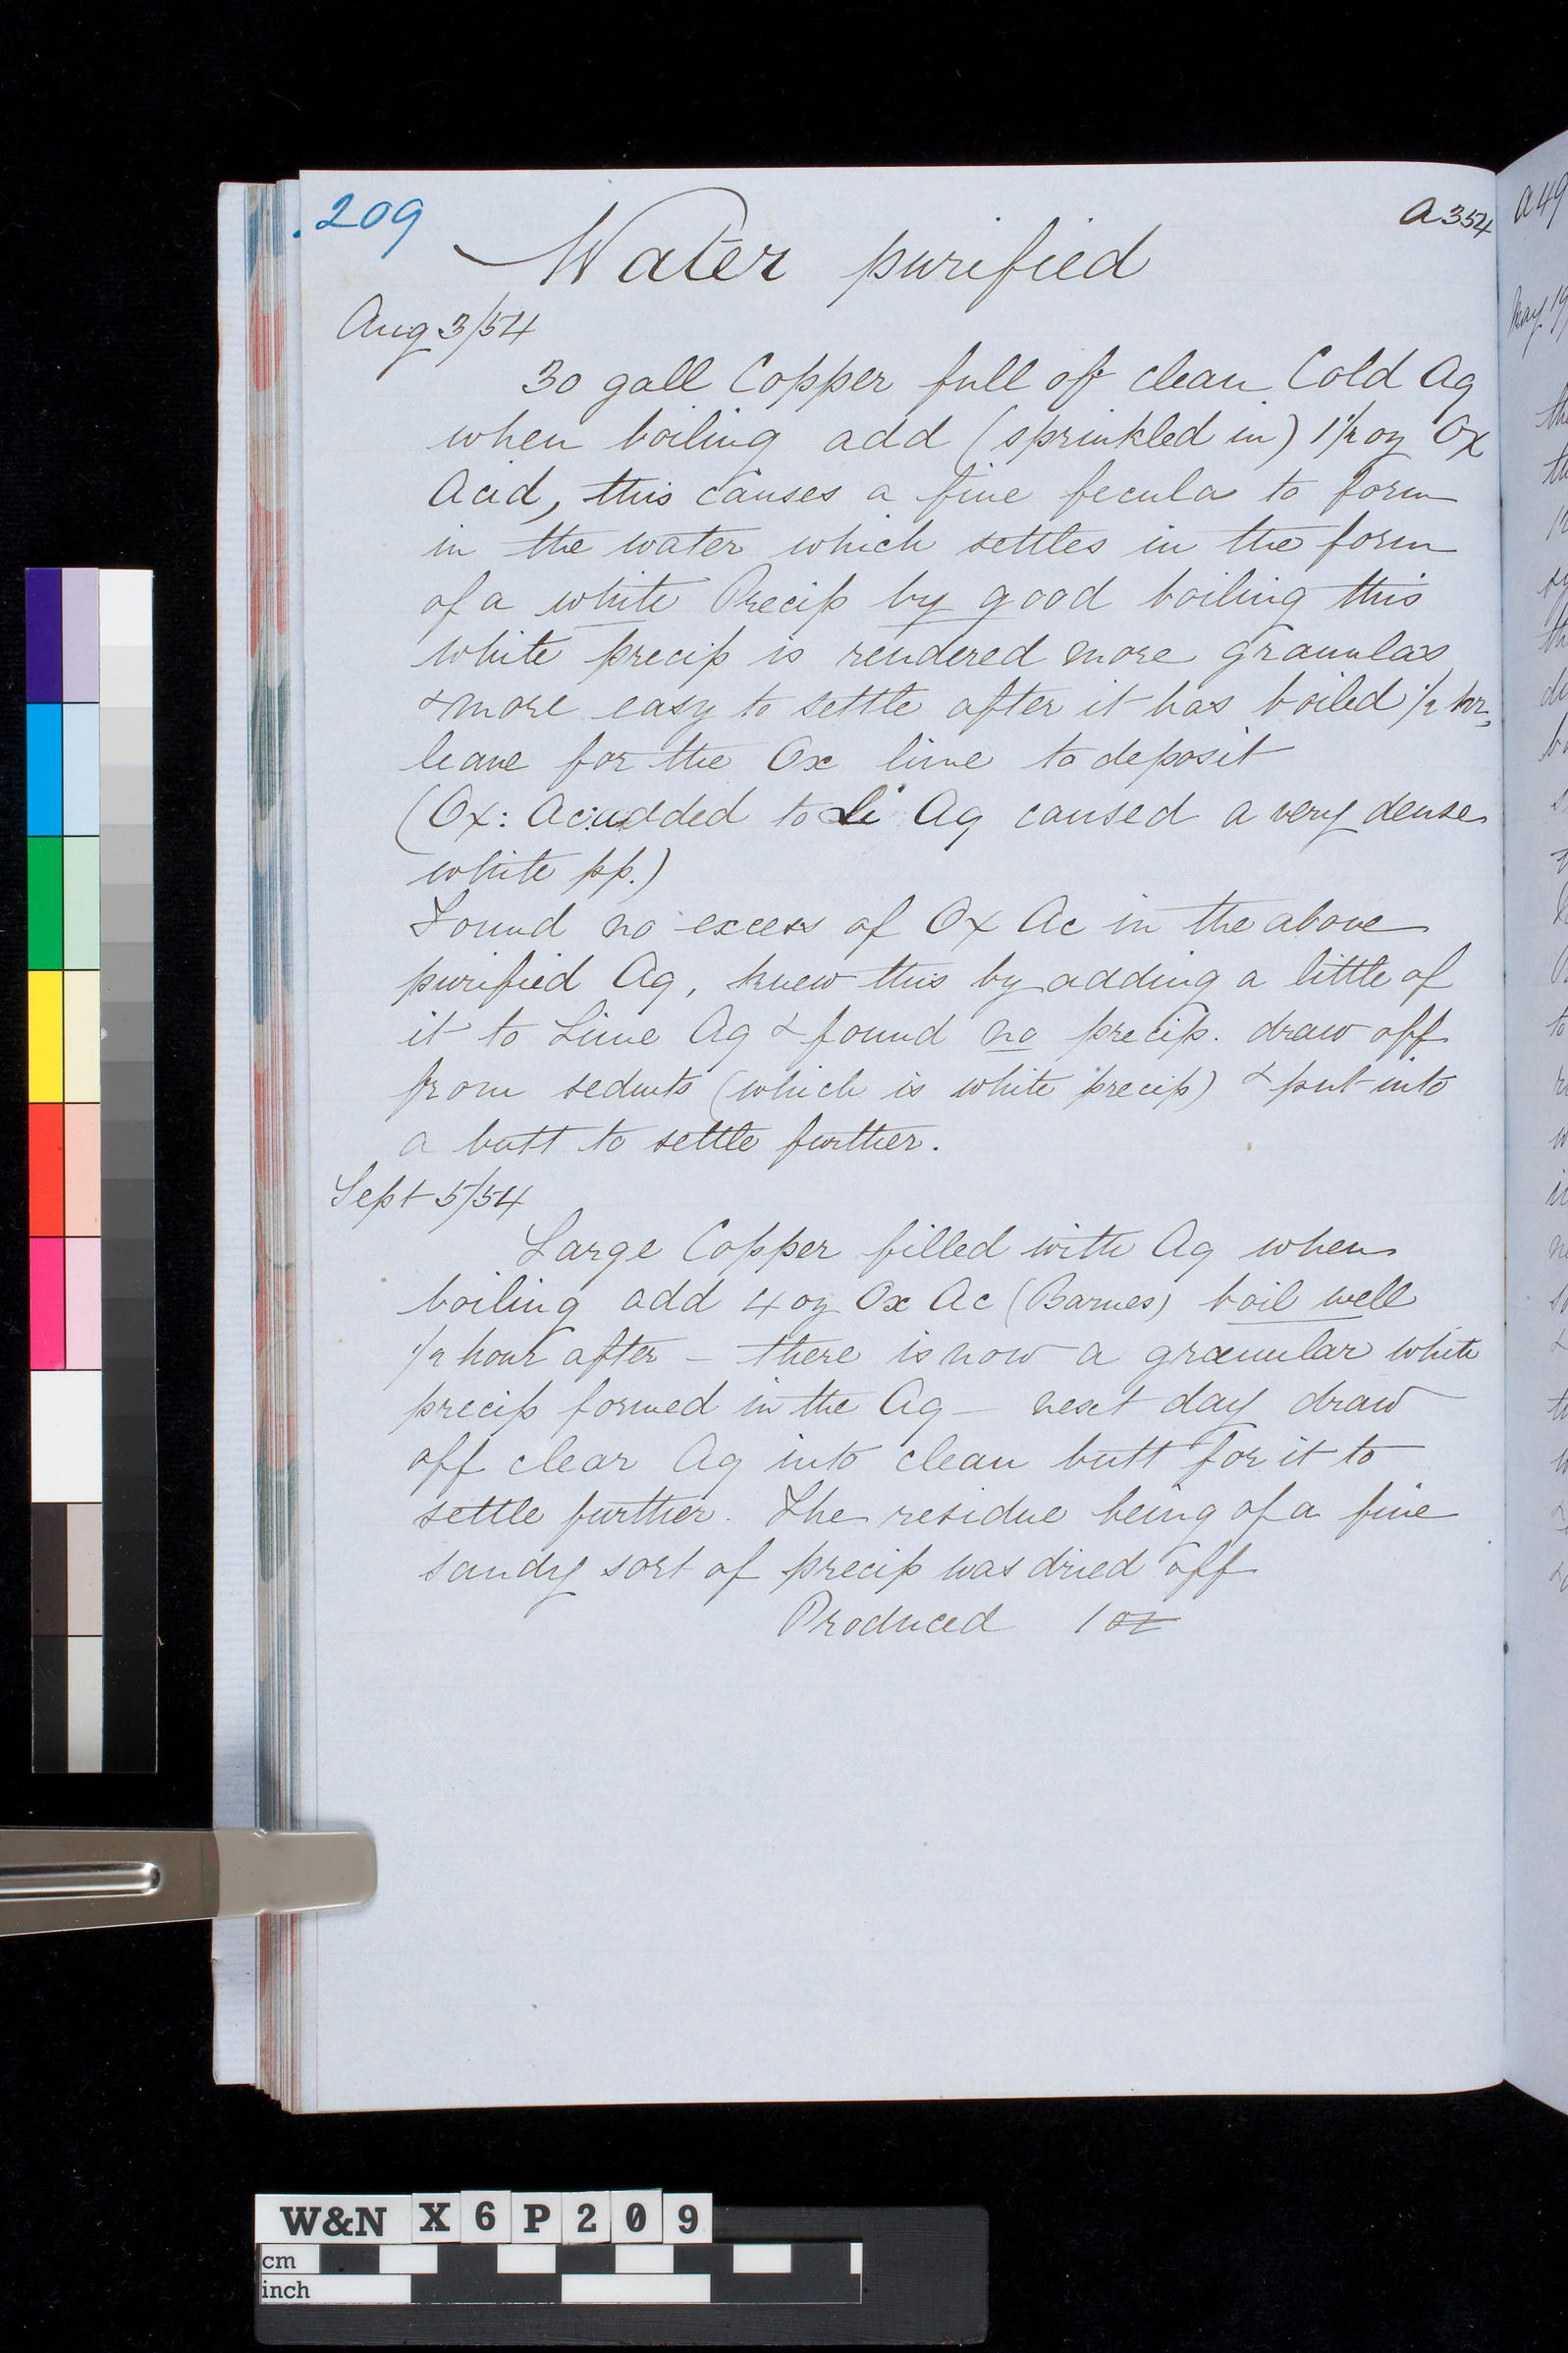 209
A354
Water purified
Aug 3/54
30 gall Copper full of clean Cold Aq
when boiling add (sprinkled in) 1½ oz Ox
Acid, this causes a fine fecula to form
in the water which settles in the form
of a white Precip by good boiling this
white precip is rendered more granular
& more easy to settle after it has boiled ½ hr,
leave for the Ox lime to deposit
(Ox: Ac: added to Li Aq caused a very dense
white pp.)
Found no excess of Ox Ac in the above
purified Aq, knew this by adding a little of
it to Lime Aq & found no precip. draw off
from sedmts (which is white precip) & put into
a butt to settle further.
Sept 5/54
Large Copper filled with Aq when
boiling add 4 oz Ox Ac (Barnes) boil well
½ hour after - there is now a granular white
precip formed in the Aq - next day draw
off clear Aq into clean butt for it to
settle further. The residue being of a fine
sandy sort of precip was dried off
Produced 1 oz
A49
May 19
W&N X6P209
cm
inch